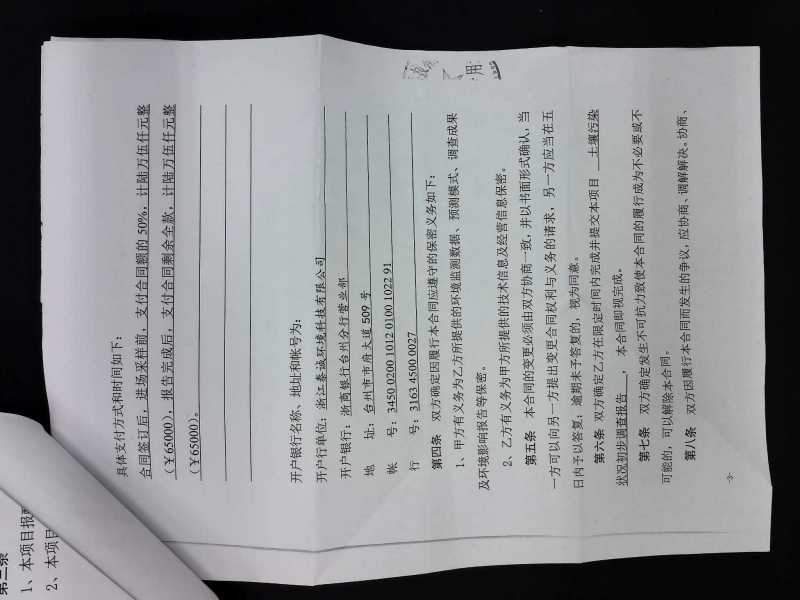 第三条
1、本项目报
2、本项目
具体支付方式和时间如下：
合同签订后，进场采样前，支付合同额的 50%，计陆万伍仟元整
（￥65000），报告完成后，支付合同剩余全款，计陆万伍仟元整
（￥65000）。
开户银行名称、地址和帐号为：
开户行单位：浙江泰诚环境科技有限公司
开户银行：浙商银行台州分行营业部
地 址：台州市市府大道 509 号
帐 号：3450 0200 1012 0100 1022 91
行 号：3163 4500 0027
第四条 双方确定因履行本合同应遵守的保密义务如下：
1、甲方有义务为乙方所提供的环境监测数据、预测模式、调查成果
及环境影响报告等保密。
2、乙方有义务为甲方所提供的技术信息及经营信息保密。
第五条 本合同的变更必须由双方协商一致，并以书面形式确认，当
一方可以向另一方提出变更合同权利与义务的请求，另一方应当在五
日内予以答复；逾期未予答复的，视为同意。
第六条 双方确定乙方在限定时间内完成并提交本项目 土壤污染
状况初步调查报告 ， 本合同即视完成。
第七条 双方确定发生不可抗力致使本合同的履行成为不必要或不
可能的，可以解除本合同。
第八条 双方因履行本合同而发生的争议，应协商、调解解决。协商、
-3-
用